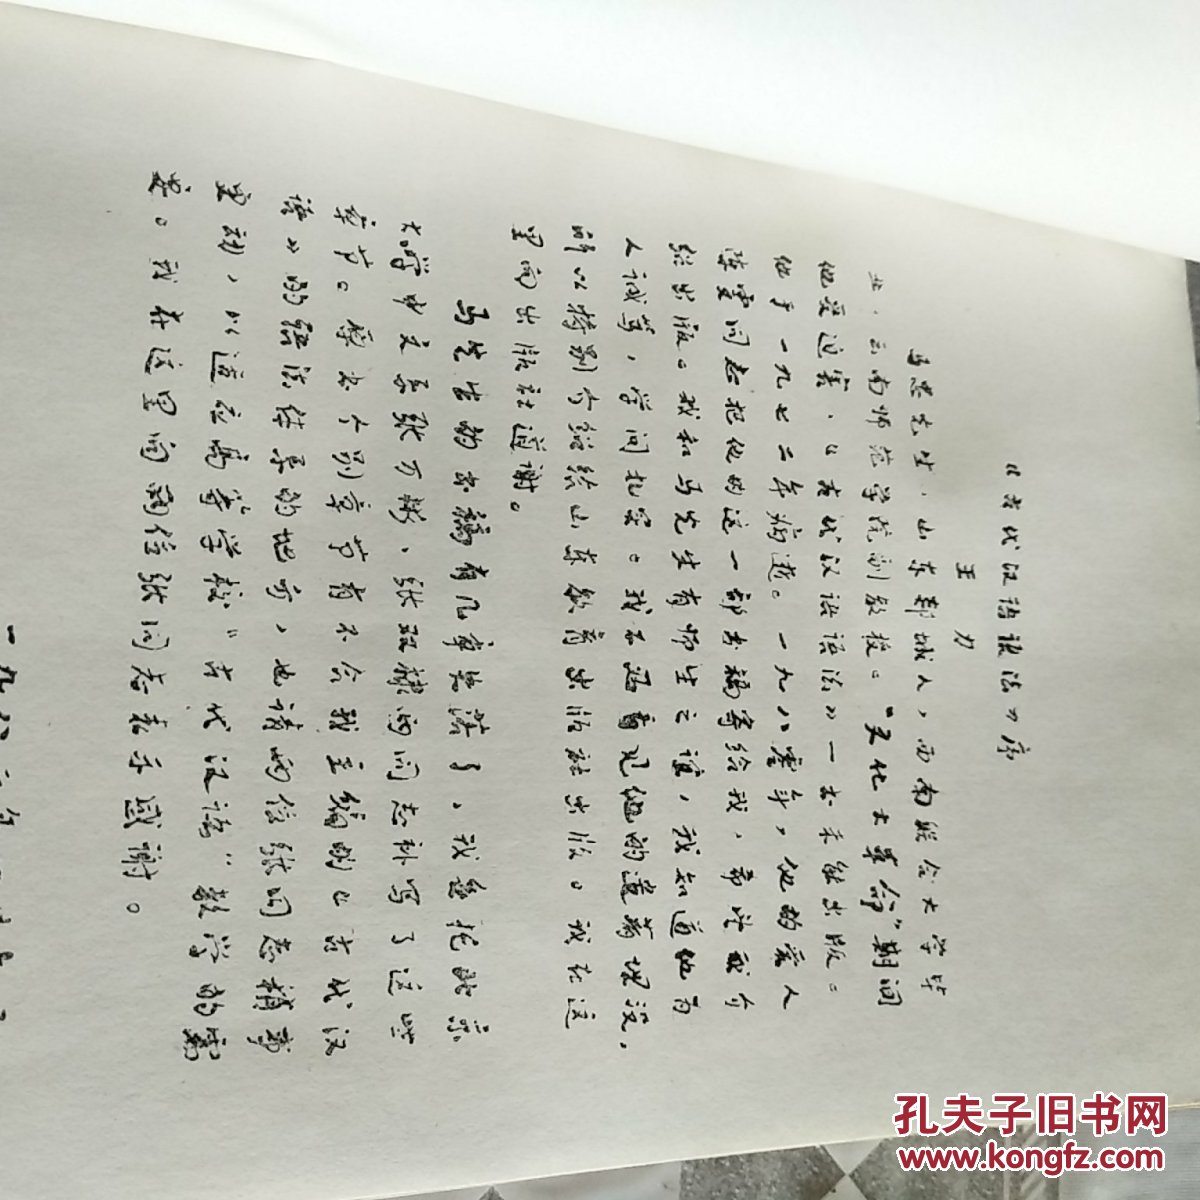 《古代汉语语法》序
王力
马忠先生，山东郯城人，西南联合大学毕
业，云南师范学院副教授。“文化大革命”期间
他受迫害，《古代汉语语法》一书未能出版。
他于一九七二年病逝。一九八零年，他的爱人
陈雯同志把他的这一部书稿寄给我，希望我介
绍出版。我和马先生有师生之谊，我知道他为
人诚笃，学问扎实。我不愿看见他的遗著埋没，
所以特别介绍给山东教育出版社出版。我在这
里向出版社道谢。
马先生的书稿有几章失落了，我委托北京
大学中文系张万彬、张双棣两同志补写了这些
章节。原书个别章节有不合我主编的《古代汉
语》的语法体系的地方，也请两位张同志稍事
更动，以适应高等学校“古代汉语”教学的需
要。我在这里向两位张同志表示感谢。
一九八
孔夫子旧书网
www.kongfz.com